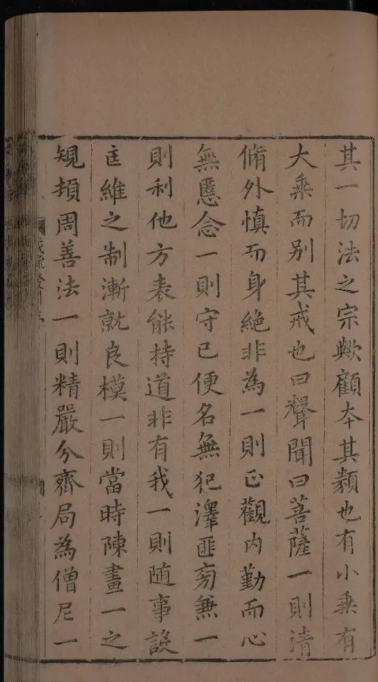 其一切法之宗歟顧本其類也有小乗有
大乗而别其戒也曰聲聞曰菩薩一則清
脩外慎而身絶非為一則正觀内勤而心
無慝念一則守已便名無犯澤匪旁兼一
則利他方表能持道非有我一則随事設
匡維之制漸就良模一則當時陳畫一之
規頓周善法一則精嚴分齊局為僧尼一